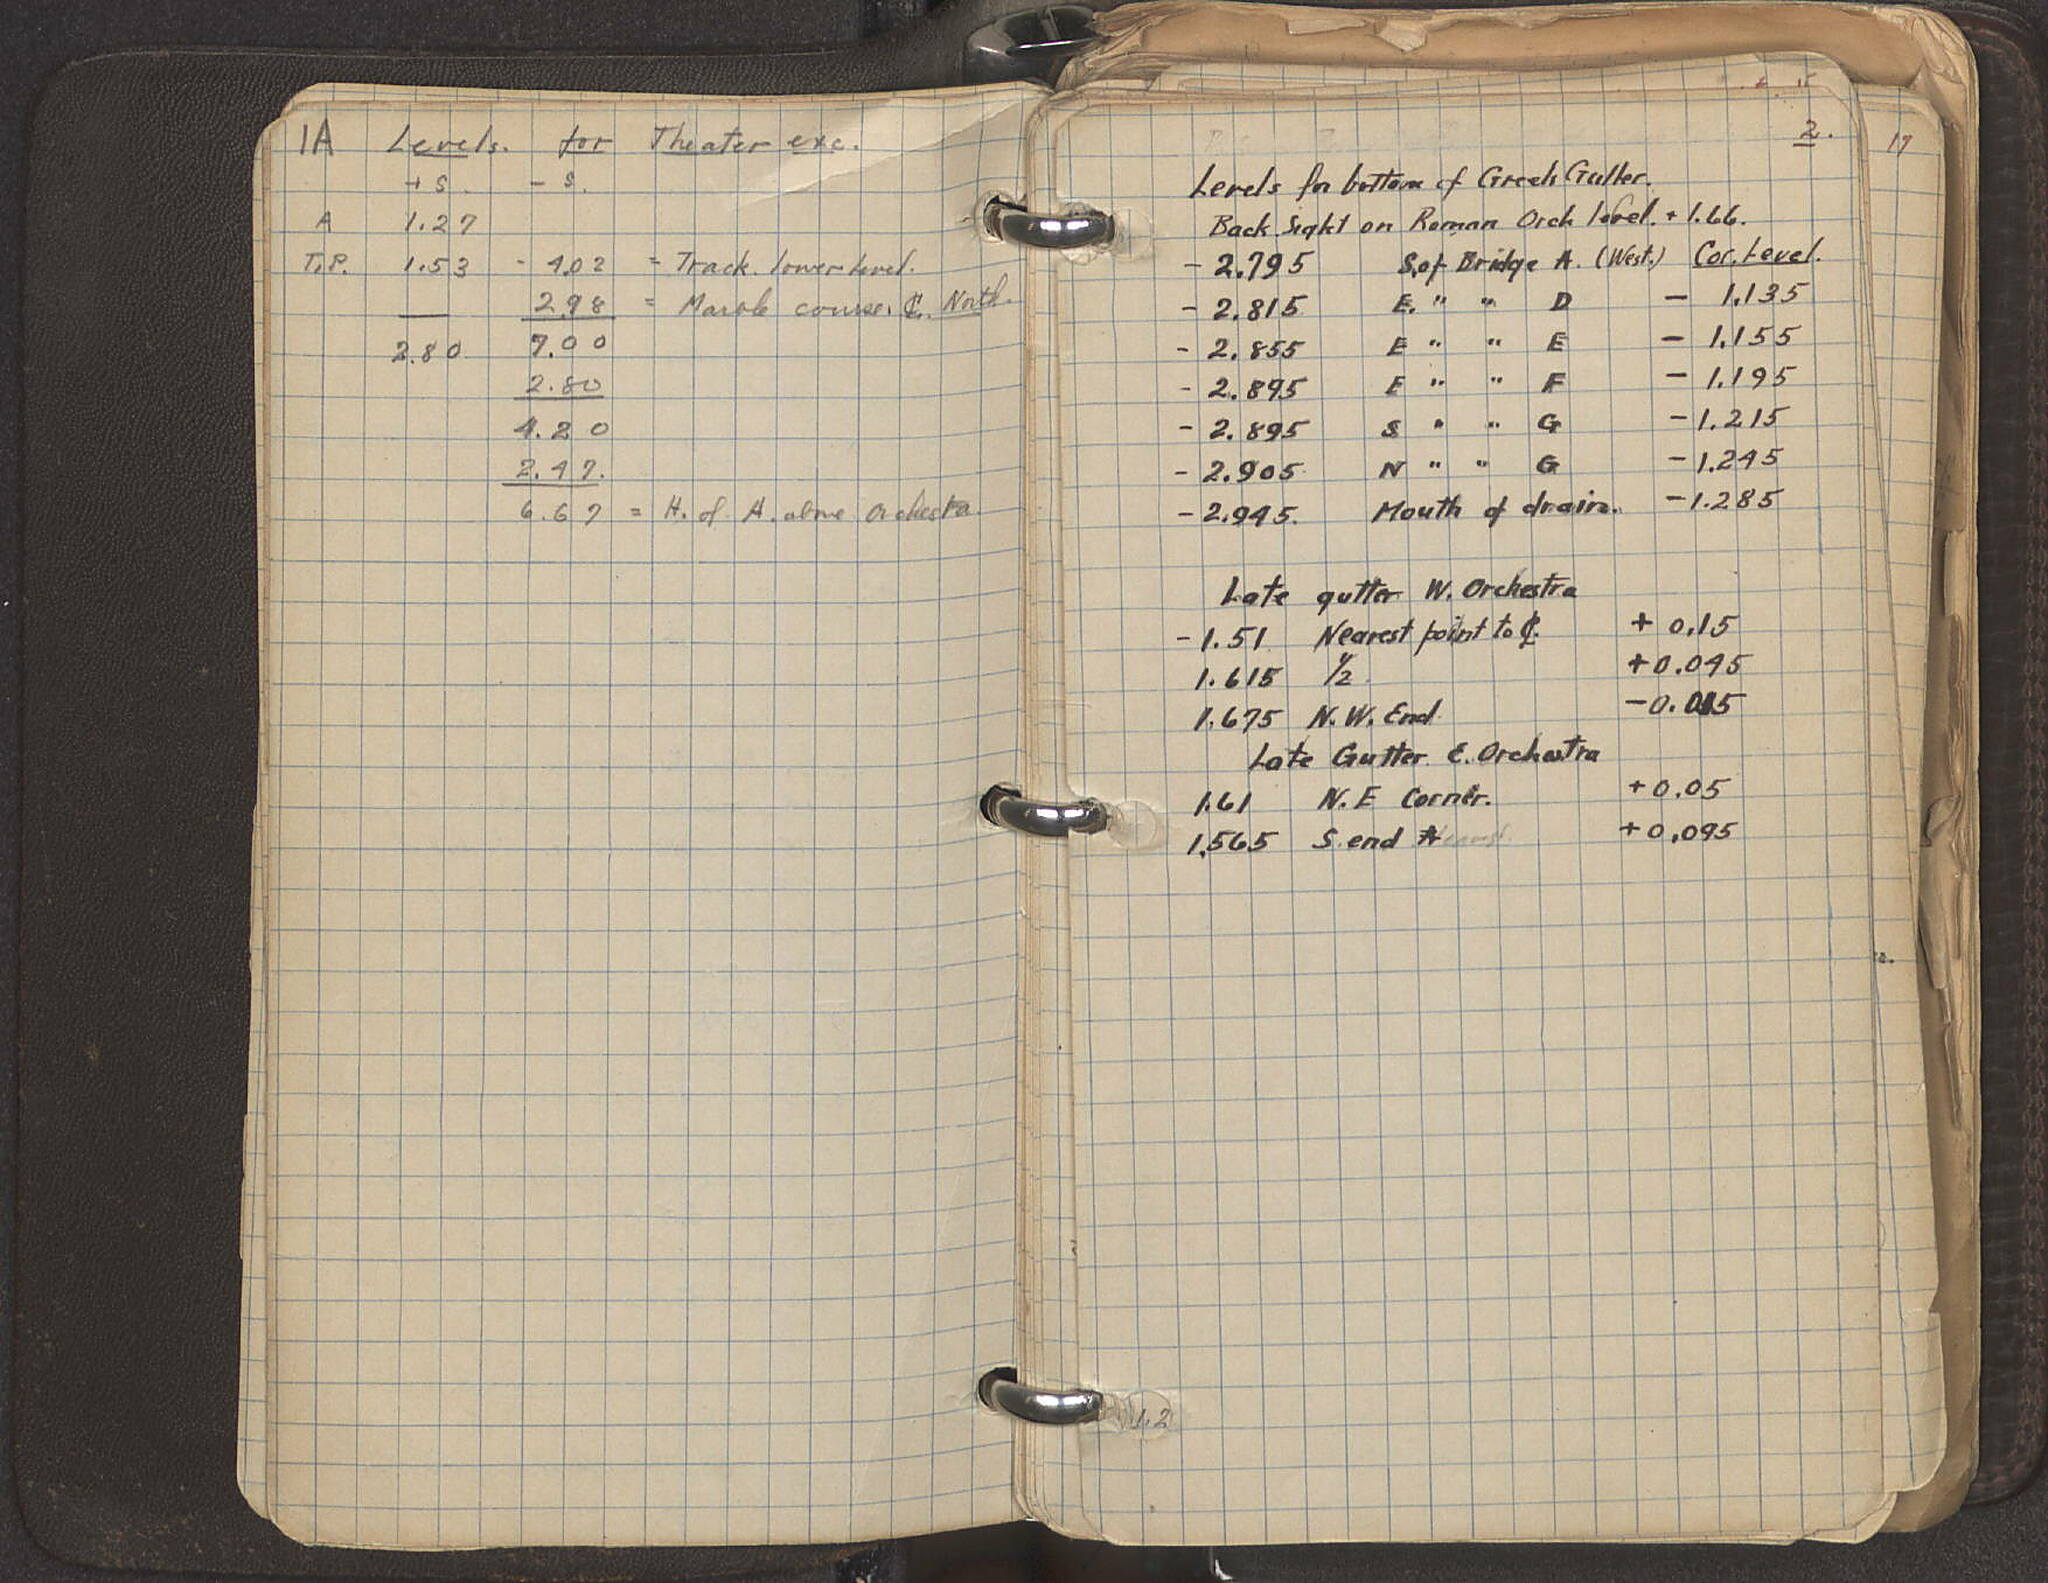 1A Levels. for Theater exc.
+ S. - S.
A 1.27
T.P. 1.53 - 4.02 = Track. lower level.
2.98 = Marble course. ℄. North.
2.80 7.00
2.80
4.20
2.47.
6.67 = H. of A. above Orchestra
2.
17
Levels for bottom of Greek Gutter.
Back Sight on Roman Orch level. + 1.66.
- 2.795 S. of Bridge A. (West.) Cor. Level.
- 2.815 E. " " D - 1.135
- 2.855 E " " E - 1.155
- 2.895 E " " F - 1.195
- 2.895 S " " G - 1.215
- 2.905 N " " G - 1.245
- 2.945. Mouth of drain. - 1.285
Late gutter W. Orchestra
- 1.51 Nearest point to ℄. + 0.15
1.615 1/2 +0.045
1.675 N.W. End -0.015
Late Gutter E. Orchestra
1.61 N.E Corner. +0.05
1.565 S. end +0.095
1.2